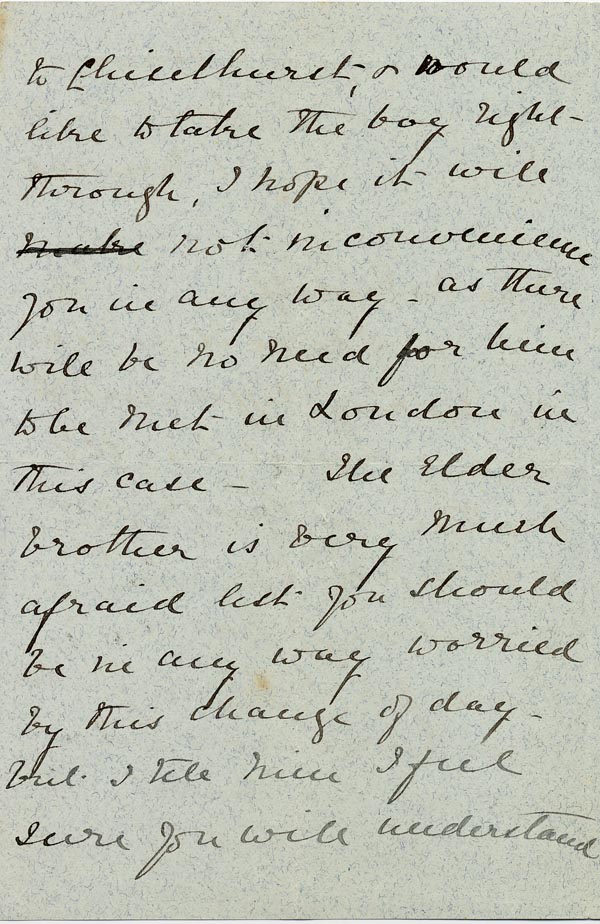 to Chiselhurst, & would
like to take the boy right
through, I hope it will
make not inconvenience
you in any way - as there
will be no need for him
to be met in London in
this case - The Elder
brother is very much
afraid lest you should
be in any way worried
by this change of day -
but I tell him I feel
sure you will understand